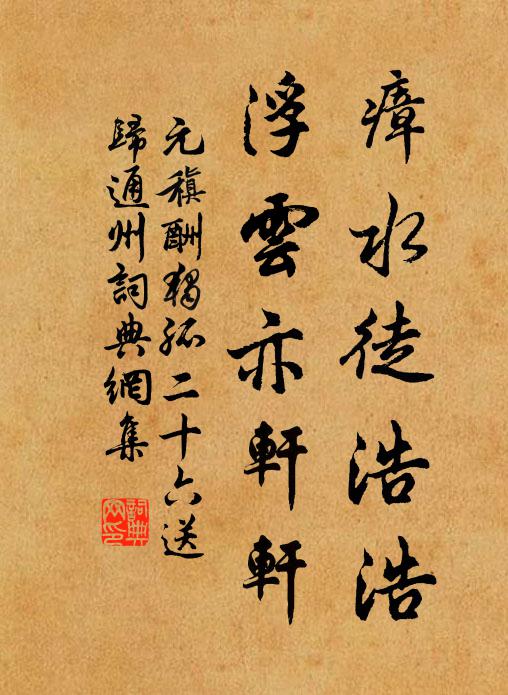 瘴水徒浩浩
浮雲亦軒軒
元稹酬獨孤二十六送
歸通州詞典網集
詞典
网印